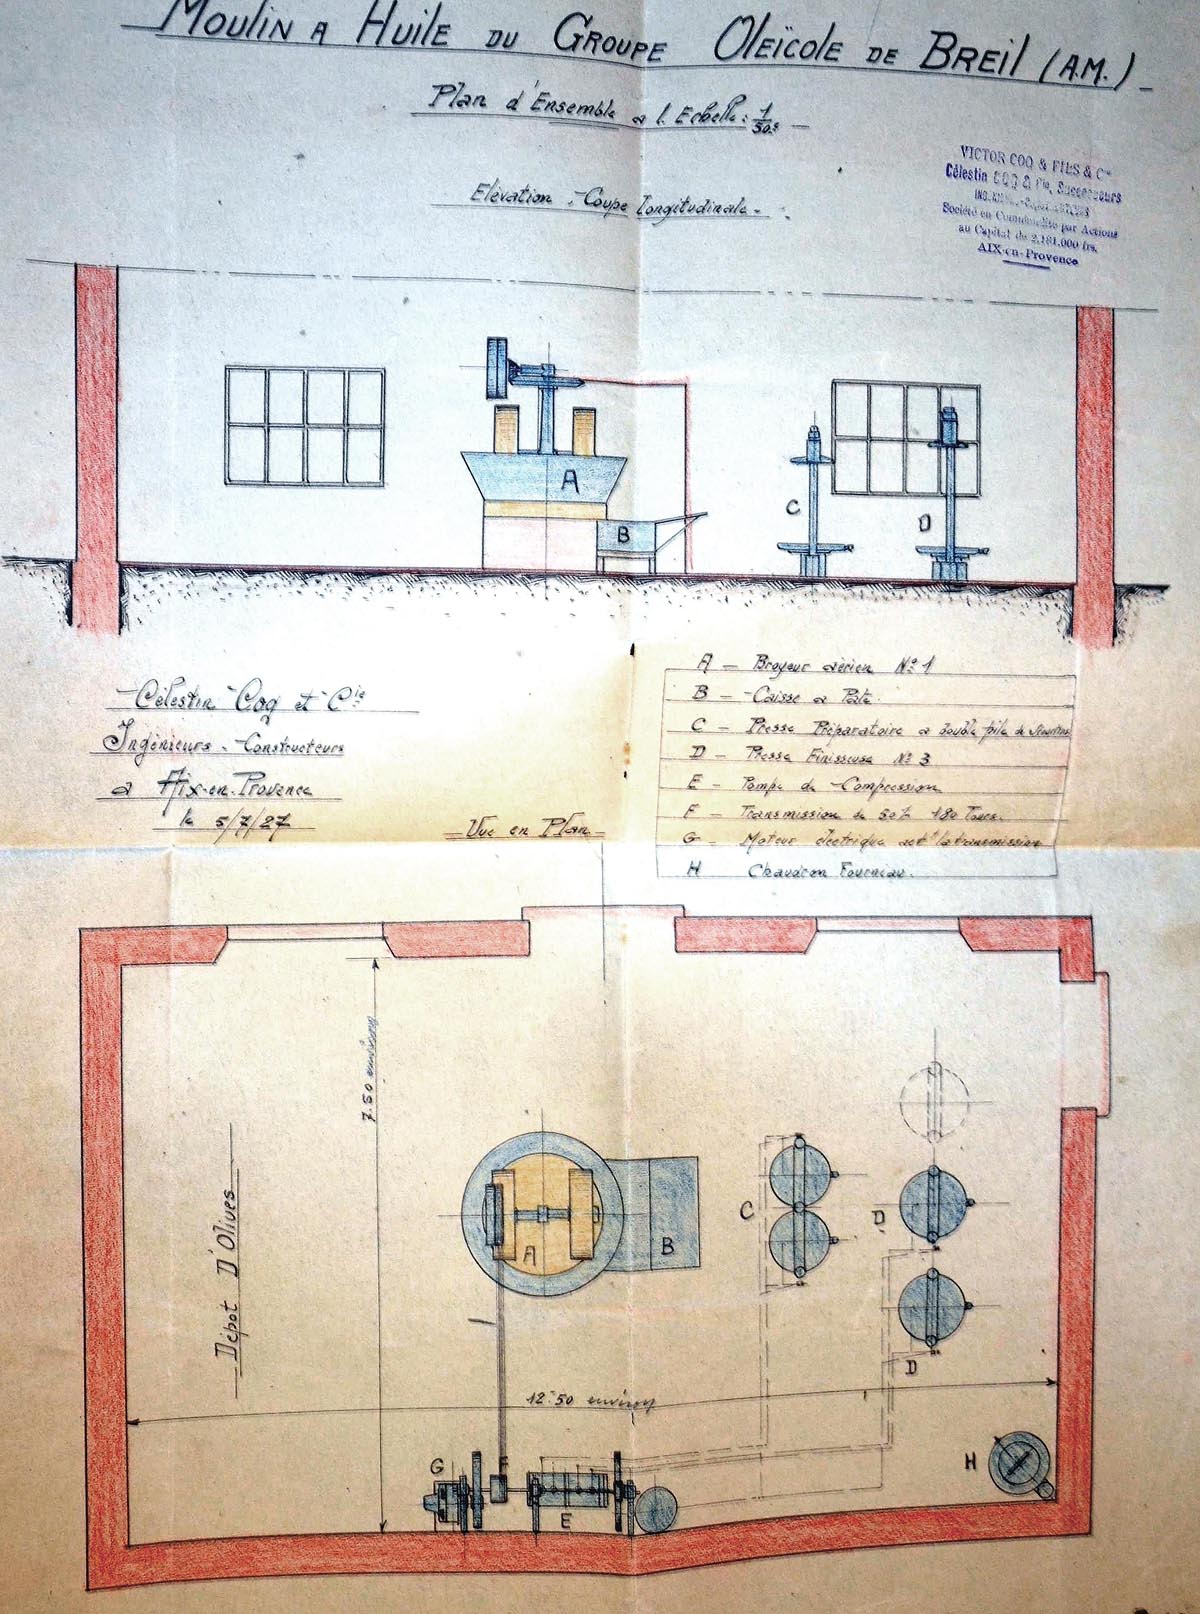 Moulin a Huile du Groupe Oleïcole de Breil (A.M.)
Plan d'Ensemble a l'Echelle: 1/50e
Elévation - Coupe Longitudinale -
VICTOR COQ & FILS & Cie
Célestin COQ & Cie, Successeurs
Société en Commandite par Actions
au Capital de 2.181.000 frs.
AIX-en-Provence
A
B
C
D
Célestin Coq et Cie
Ingénieurs - Constructeurs
a Aix-en-Provence
le 5/7/27
A - Broyeur aérien No 1
B - Caisse a Pate
C - Presse Préparatoire a double pile de Scourtins
D - Presse Finisseuse No 3
E - Pompe de Compression
F - Transmission de 50% 180 Tours.
G - Moteur électrique actt la transmission
H Chaudron Fourneau.
Vue en Plan
7.50 environ
Dépot D'Olives
A
B
C
D
D
12.50 environ
G
F
E
H